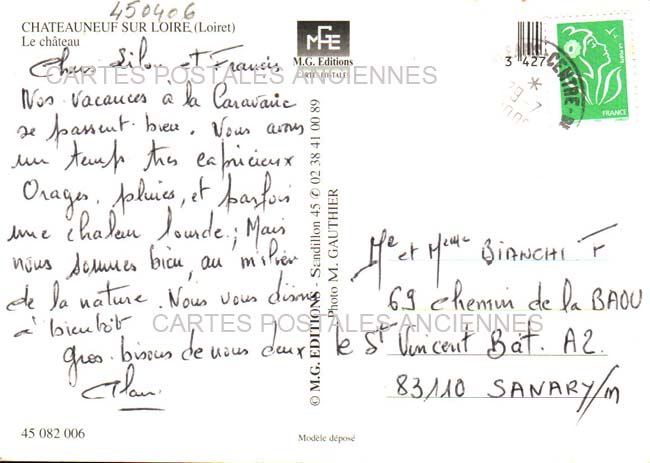 450406
CHATEAUNEUF SUR LOIRE (Loiret)
Le château
M.G. Editions
CARTES POSTALES
3 427
CENTRE
LA POSTE
FRANCE
CARTES POSTALES ANCIENNES
Chers Lilou et Francis
Nos vacances a la Caravane
se passent bien. Nous avons
un temps tres capricieux
Orages, pluies, et parfois
une chaleur lourde; Mais
nous sommes bien, au milieu
de la nature. Nous vous disons
à bientôt
Gros bisous de nous deux
© M.G. EDITIONS - Sandillon 45 ✆ 02 38 41 00 89
Photo M. GAUTHIER
Mr et Meme BIANCHI F
69 chemin de la BAOU
le St Vincent Bât. A2.
83110 SANARY/m
CARTES POSTALES ANCIENNES
45 082 006
Modèle déposé